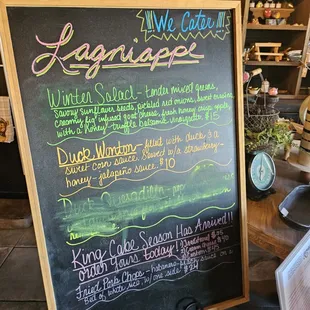 !!! We Cater !!!
Lagniappe
Winter Salad - tender mixed greens,
Savory Sunflower seeds, pickled red onions, sweet
creamy fig infused goat cheese, fresh honey crisp apple
with a honey-truffle balsamic vinaigrette $15
Duck Wonton - filled with duck & a
sweet corn sauce. Served w/a strawberry-
honey-jalapeño sauce. $10
Duck Quesadilla
King Cake Season Has Arrived!!
order yours today!
Fried Pork Chops - habanero
Bed of white rice, w/ one side $24